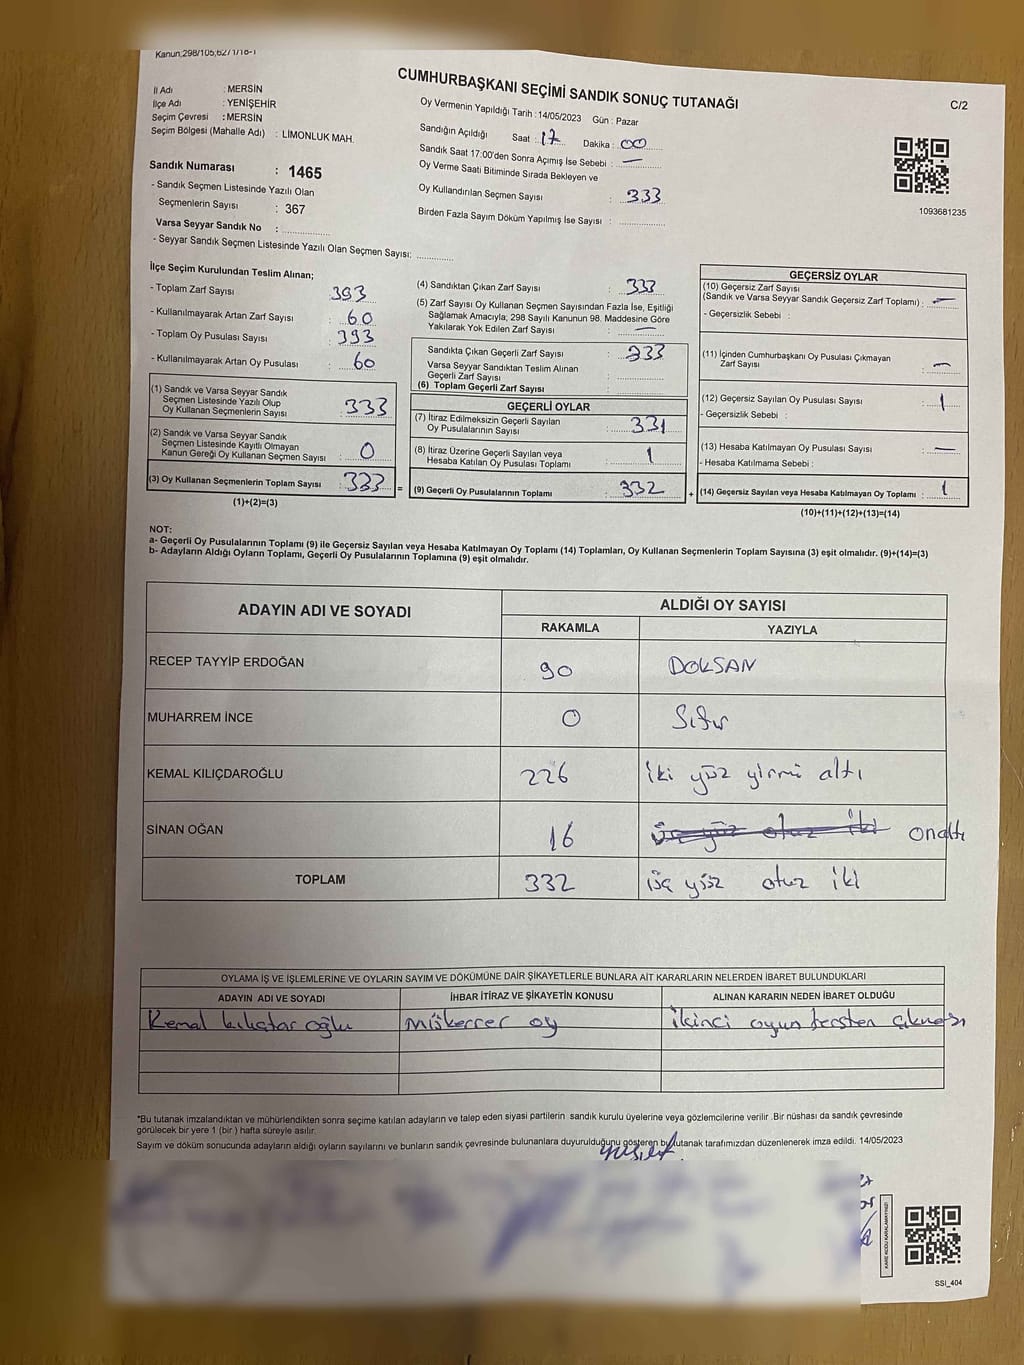 Kanun;298/105,62/1/16-1
CUMHURBAŞKANI SEÇİMİ SANDIK SONUÇ TUTANAĞI
C/2
İl Adı : MERSİN
İlçe Adı : YENİŞEHİR
Seçim Çevresi : MERSİN
Seçim Bölgesi (Mahalle Adı) : LİMONLUK MAH.
Oy Vermenin Yapıldığı Tarih : 14/05/2023 Gün : Pazar
Sandığın Açıldığı Saat : 17 Dakika : 00
Sandık Saat 17:00'den Sonra Açımış İse Sebebi : —
Oy Verme Saati Bitiminde Sırada Bekleyen ve
Oy Kullandırılan Seçmen Sayısı : 333
Birden Fazla Sayım Döküm Yapılmış İse Sayısı :
1093681235
Sandık Numarası : 1465
- Sandık Seçmen Listesinde Yazılı Olan
Seçmenlerin Sayısı : 367
Varsa Seyyar Sandık No :
- Seyyar Sandık Seçmen Listesinde Yazılı Olan Seçmen Sayısı:
İlçe Seçim Kurulundan Teslim Alınan;
- Toplam Zarf Sayısı 393
- Kullanılmayarak Artan Zarf Sayısı : 60
- Toplam Oy Pusulası Sayısı : 393
- Kullanılmayarak Artan Oy Pusulası : 60
(1) Sandık ve Varsa Seyyar Sandık
Seçmen Listesinde Yazılı Olup
Oy Kullanan Seçmenlerin Sayısı : 333
(2) Sandık ve Varsa Seyyar Sandık
Seçmen Listesinde Kayıtlı Olmayan
Kanun Gereği Oy Kullanan Seçmen Sayısı : 0
(3) Oy Kullanan Seçmenlerin Toplam Sayısı : 333
(1)+(2)=(3)
(4) Sandıktan Çıkan Zarf Sayısı : 333
(5) Zarf Sayısı Oy Kullanan Seçmen Sayısından Fazla İse, Eşitliği
Sağlamak Amacıyla; 298 Sayılı Kanunun 98. Maddesine Göre
Yakılarak Yok Edilen Zarf Sayısı : —
Sandıkta Çıkan Geçerli Zarf Sayısı : 333
Varsa Seyyar Sandıktan Teslim Alınan
Geçerli Zarf Sayısı :
(6) Toplam Geçerli Zarf Sayısı
GEÇERLİ OYLAR
(7) İtiraz Edilmeksizin Geçerli Sayılan
Oy Pusulalarının Sayısı : 331
(8) İtiraz Üzerine Geçerli Sayılan veya
Hesaba Katılan Oy Pusulası Toplamı : 1
= (9) Geçerli Oy Pusulalarının Toplamı : 332
GEÇERSİZ OYLAR
(10) Geçersiz Zarf Sayısı
(Sandık ve Varsa Seyyar Sandık Geçersiz Zarf Toplamı) : —
- Geçersizlik Sebebi :
(11) İçinden Cumhurbaşkanı Oy Pusulası Çıkmayan
Zarf Sayısı : —
(12) Geçersiz Sayılan Oy Pusulası Sayısı : 1
- Geçersizlik Sebebi :
(13) Hesaba Katılmayan Oy Pusulası Sayısı : —
- Hesaba Katılmama Sebebi :
+ (14) Geçersiz Sayılan veya Hesaba Katılmayan Oy Toplamı : 1
(10)+(11)+(12)+(13)=(14)
NOT:
a- Geçerli Oy Pusulalarının Toplamı (9) ile Geçersiz Sayılan veya Hesaba Katılmayan Oy Toplamı (14) Toplamları, Oy Kullanan Seçmenlerin Toplam Sayısına (3) eşit olmalıdır. (9)+(14)=(3)
b- Adayların Aldığı Oyların Toplamı, Geçerli Oy Pusulalarının Toplamına (9) eşit olmalıdır.
ADAYIN ADI VE SOYADI ALDIĞI OY SAYISI
RAKAMLA YAZIYLA
RECEP TAYYİP ERDOĞAN 90 DOKSAN
MUHARREM İNCE 0 Sıfır
KEMAL KILIÇDAROĞLU 226 iki yüz yirmi altı
SİNAN OĞAN 16 üç yüz otuz iki onaltı
TOPLAM 332 üç yüz otuz iki
OYLAMA İŞ VE İŞLEMLERİNE VE OYLARIN SAYIM VE DÖKÜMÜNE DAİR ŞİKAYETLERLE BUNLARA AİT KARARLARIN NELERDEN İBARET BULUNDUKLARI
ADAYIN ADI VE SOYADI İHBAR İTİRAZ VE ŞİKAYETİN KONUSU ALINAN KARARIN NEDEN İBARET OLDUĞU
Kemal kılıçtar oğlu Mükerrer oy İkinci oyun tersten çıkması
*Bu tutanak imzalandıktan ve mühürlendikten sonra seçime katılan adayların ve talep eden siyasi partilerin sandık kurulu üyelerine veya gözlemcilerine verilir .Bir nüshası da sandık çevresinde
görülecek bir yere 1 (bir ) hafta süreyle asılır.
Sayım ve döküm sonucunda adayların aldığı oyların sayılarını ve bunların sandık çevresinde bulunanlara duyurulduğunu gösteren bu tutanak tarafımızdan düzenlenerek imza edildi. 14/05/2023
KARE KODU KARALAMAYINIZ!
SSI_404